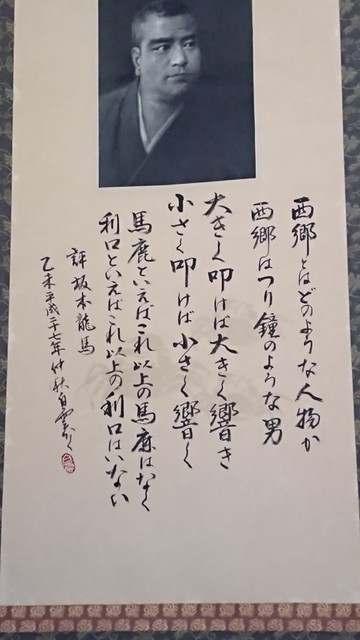 西郷とはどのような人物か
西郷はつり鐘のような男
大きく叩けば大きく響き
小さく叩けば小さく響く
馬鹿といえばこれ以上の馬鹿はなく
利口といえばこれ以上の利口はいない
評坂本龍馬
乙未平成二十七年仲秋白雲かく